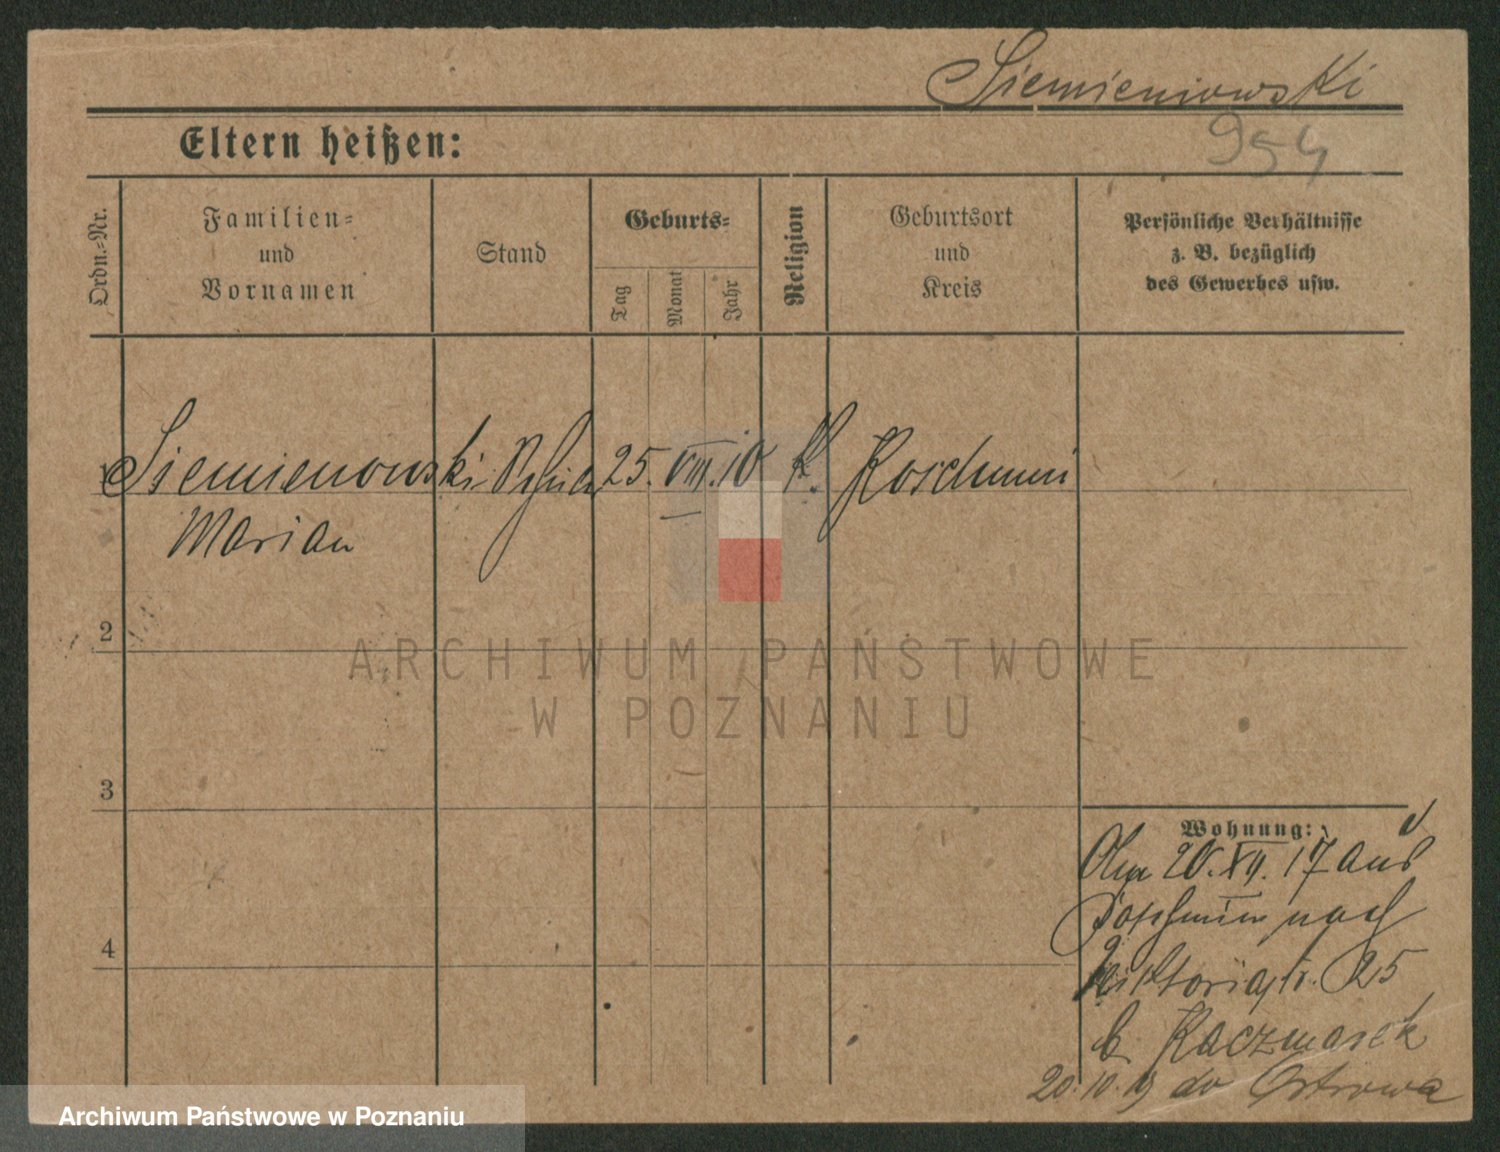 Siemieniowski
Eltern heißen:
954
Ordn.=Nr.
Familien=
und
Vornamen
Stand
Geburts=
Tag
Monat
Jahr
Religion
Geburtsort
und
Kreis
Persönliche Verhältnisse
z. B. bezüglich
des Gewerbes usw.
Siemienowski 25. VIII. 10 k. Koschmin
Marian
2
ARCHIWUM PAŃSTWOWE
W POZNANIU
3
Wohnung:
20. XII. 17 aus
Koschmin nach
Viktoriastr. 25
b. Kaczmarek
20.10.19 do Ostrowa
4
Archiwum Państwowe w Poznaniu